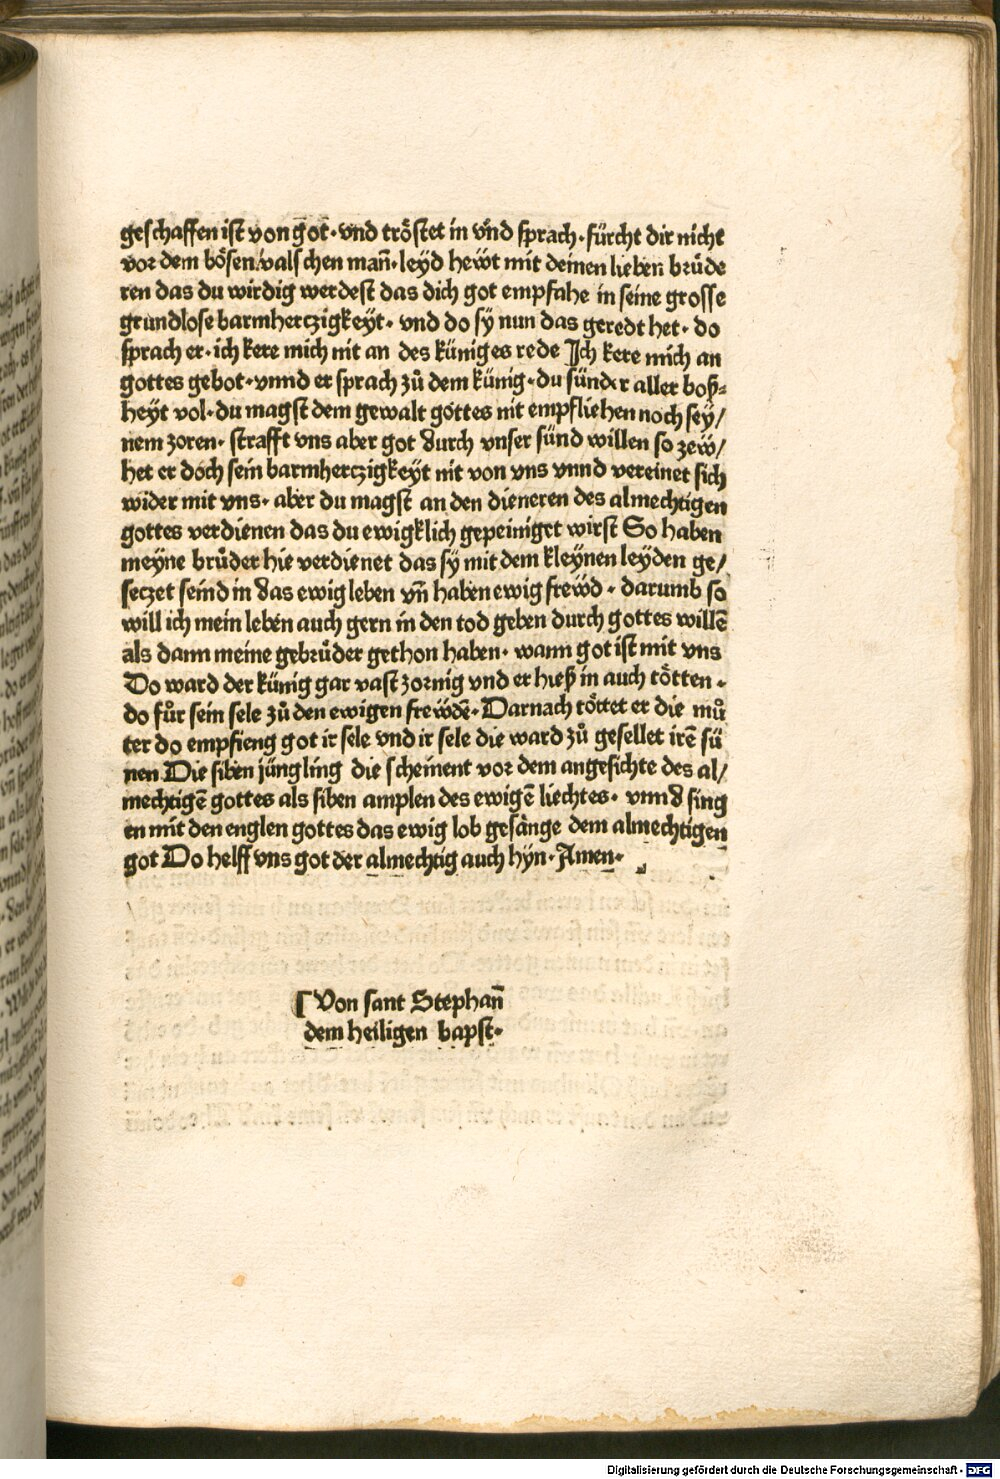 geschaffen ist von got· vnd tröstet in vnd sprach· fürcht dir nicht
vor dem bösen valschen man̄· leyd hewt mit deinen lieben brůde
ren das du wirdig werdest das dich got empfahe in seine grosse
grundlose barmherczigkeyt· vnd do sy nun das geredt het· do
sprach er· ich kere mich nit an des küniges rede Ich kere mich an
gottes gebot· vnnd er sprach zů dem künig· du sünder aller boß⸗
heyt vol· du magst dem gewalt gottes nit empfliehen noch sey/
nem zoren· strafft vns aber got durch vnser sünd willen so zew̎/
het er doch sein barmherczigkeyt nit von vns vnnd vereinet sich
wider mit vns· aber du magst an den dieneren des almechtigen
gottes verdienen das du ewigklich gepeiniget wirst So haben
meyne brůder hie verdienet das sy mit dem kleynen leyden ge/
seczet seind in das ewig leben vn̄ haben ewig frew̎d· darumb so
will ich mein leben auch gern in den tod geben durch gottes willē
als dann meine gebrůder gethon haben· wann got ist mit vns
Do ward der künig gar vast zornig vnd er hieß in auch tötten·
do fůr sein sele zů den ewigen frew̎dē· Darnach töttet er die mů
ter do empfieng got ir sele vnd ir sele die ward zů gesellet irē sü
nen Die siben jüngling die scheinent vor dem angesichte des al/
mechtigē gottes als siben amplen des ewigē liechtes· vnnd sing
en mit den englen gottes das ewig lob gesänge dem almechtigen
got Do helff vns got der almechtig auch hyn· Amen·
Von sant Stephan̄
dem heiligen bapst·
Digitalisierung gefördert durch die Deutsche Forschungsgemeinschaft - DFG